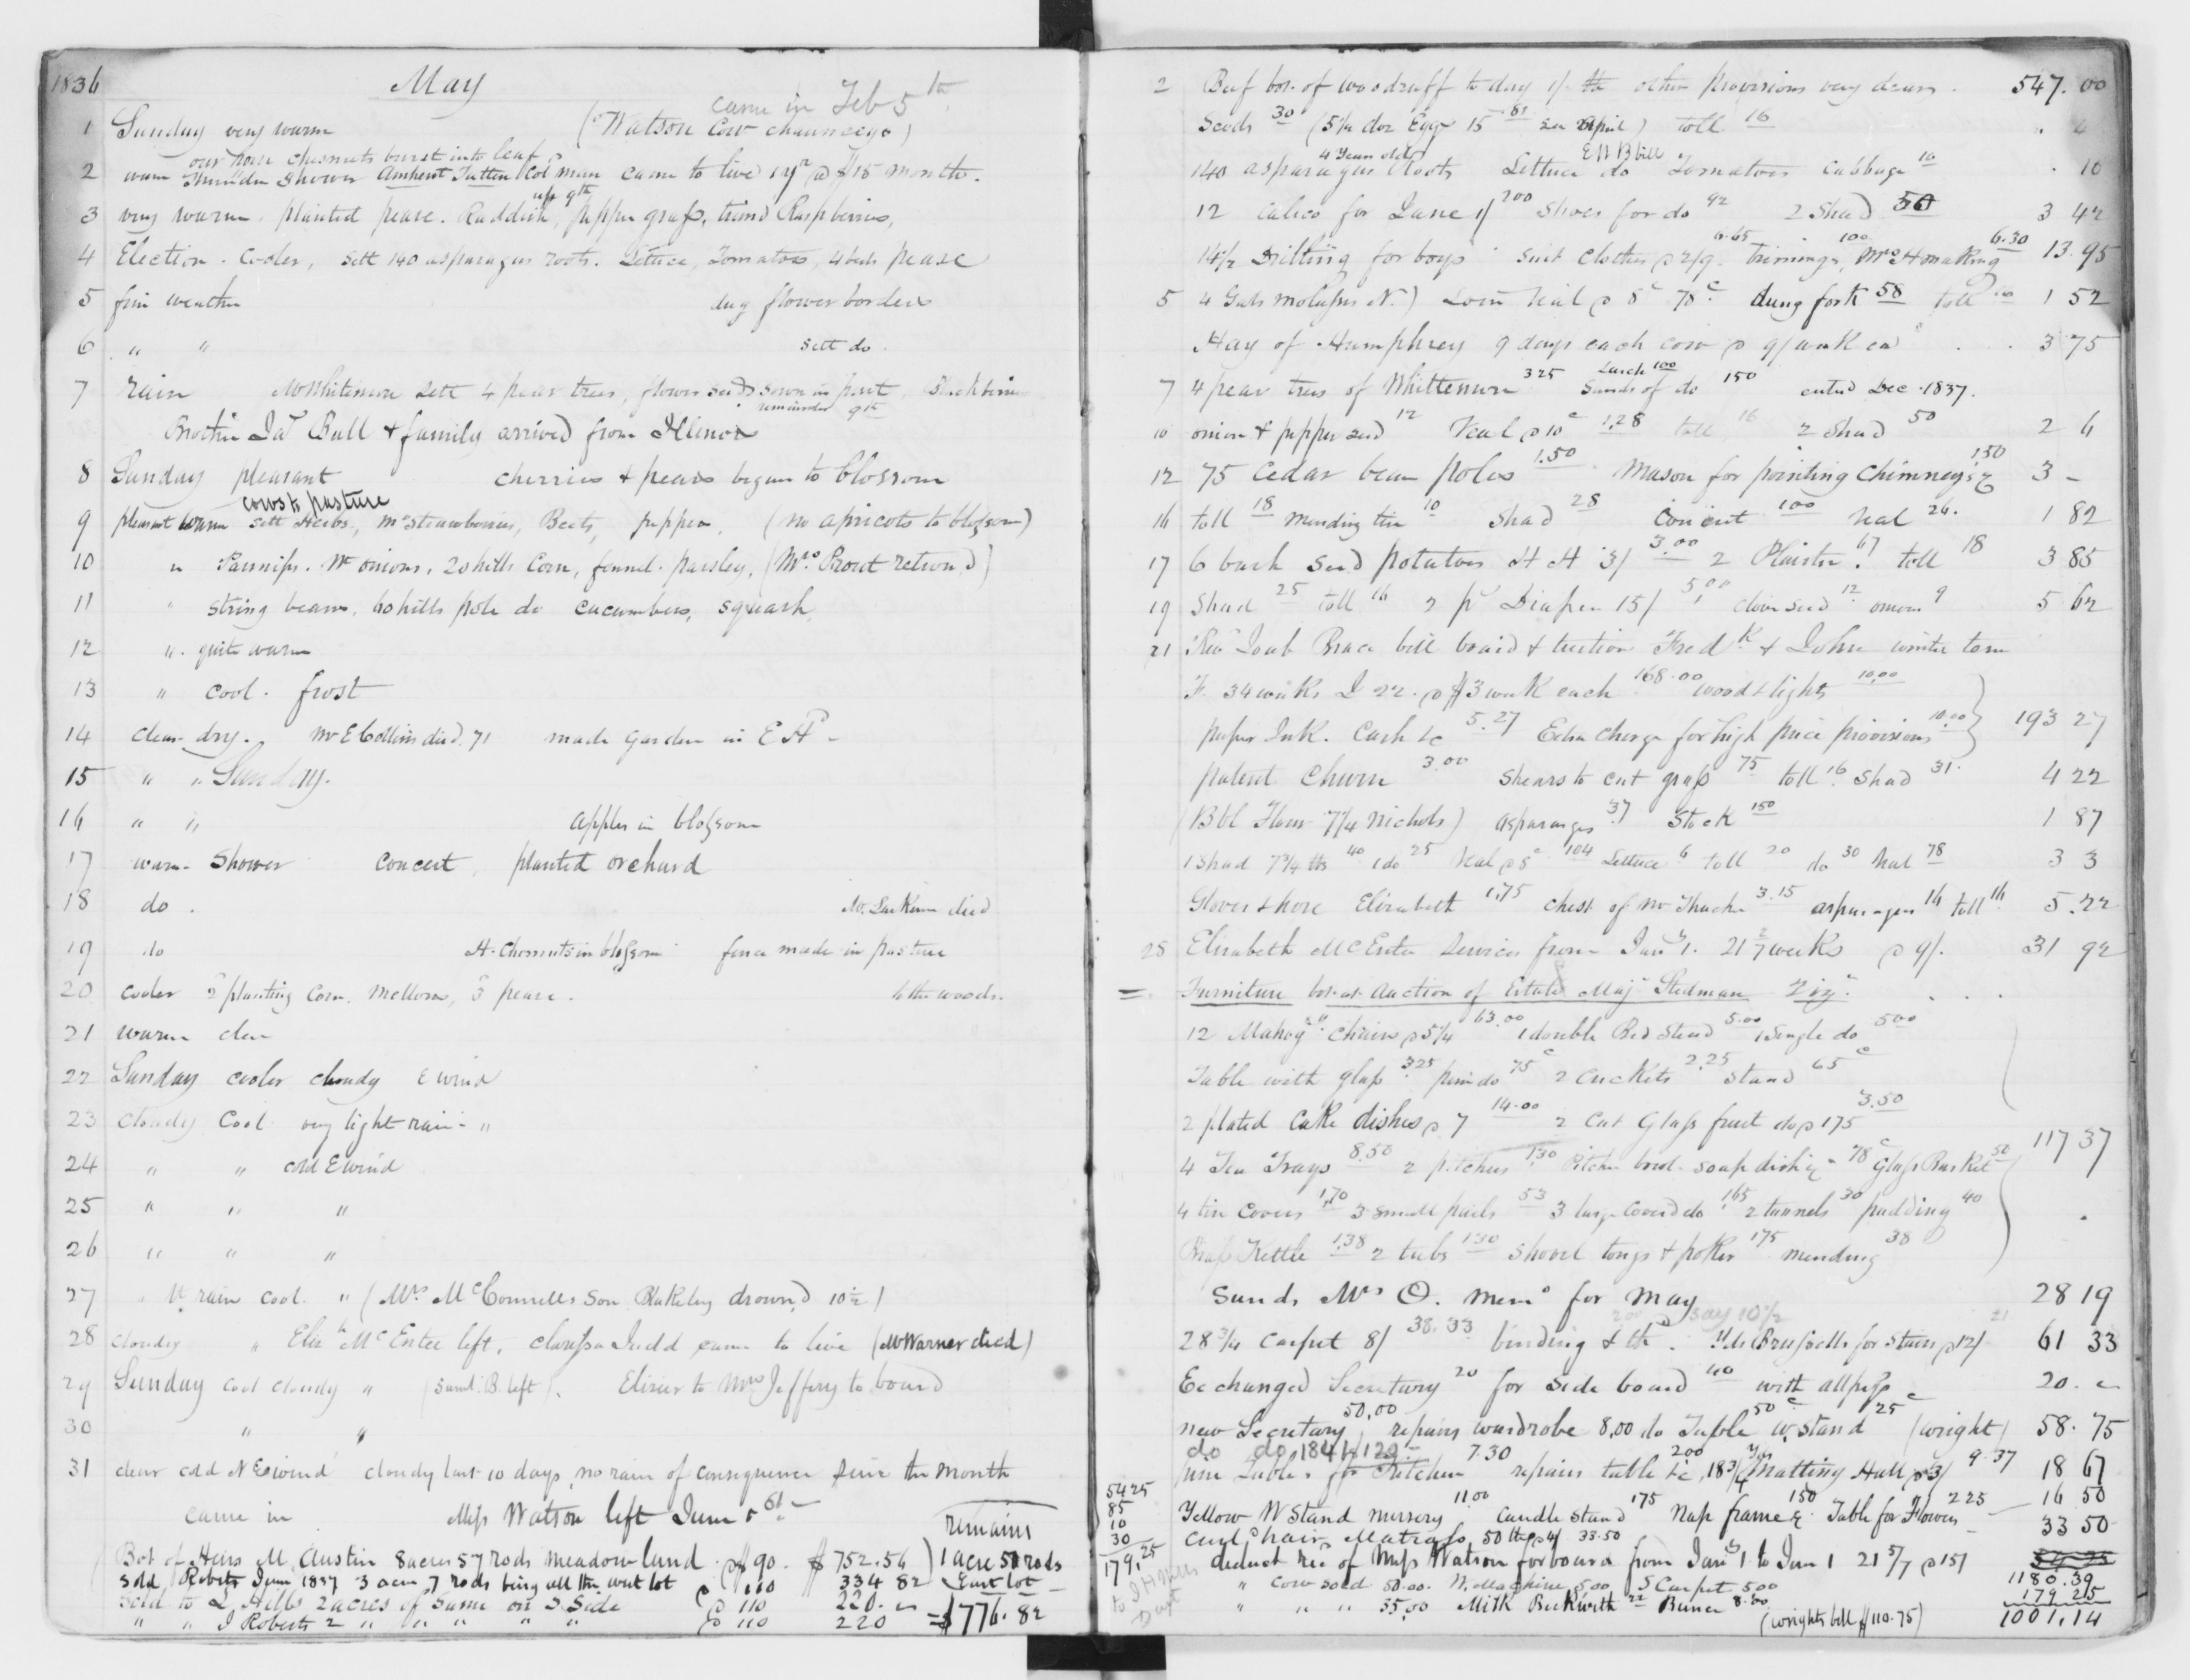 1836 May
came in Feb 5th
1 Sunday very warm (Watson Cow chaunceys)
our horse chesnuts burst into leaf
2 warm Thunder Shower Amherst Col man came to live 1 yr @ $15 month.
up 9th
3 very warm. planted pease. Raddish, pepper grass, trimd Raspberries,
4 Election. Cooler, sett 140 asparagus roots. Lettuce, Tomatoes, 4 beds pease
5 fine weather dug flower borders
6 " " sett do
7 rain Mr Whitemore sett 4 pear trees, flower seeds sown in part,
remainder 9th
Brother Jas Bull & family arrived from Illinois
8 Sunday pleasant cherries & pears began to blossom
cows to pasture
9 pleasant warm sett Herbs, strawberries, Beets, pepper, (no apricots to blossom)
10 " Parsnips. W onions, 20 hills Corn, fennel. parsley, (Mrs Prout returnd)
11 " string beans, 60 hills pole do cucumbers, squash,
12 " quite warm
13 " cool. frost
14 clear dry. Mr E Collins died 71 made garden in E H
15 " " Sunday.
16 " " apples in blossom
17 warm Shower Concert, planted orchard
18 do. Mr. Larkum died
19 do H. Chesnuts in blossom fence made in pasture
20 cooler 2d planting Corn. Mellons, 3d pease. to the woods.
21 warm clear
22 Sunday cooler cloudy E wind
23 Cloudy Cool very light rain "
24 " " cold E wind
25 " " "
26 " " "
27 " lt rain cool " (Mrs McConnells son Blakeley drownd 10½)
28 cloudy " Elizth McEntee left, Clarissa Judd came to live (Mr Warner died)
29 Sunday cool cloudy " (Saml. B. left). Elizur to Mrs Jeffery to board
30 " "
31 clear cold N E wind cloudy last 10 days, no rain of consequence since the month
came in Miss Watson left June 5th
remains
Bot of Heirs M. Austin 8 acres 57 rods meadow land @ $90. $752.56 1 acre 50 rods
Sold Roberts June 1837 3 acre 7 rods being all the west lot @ 110 334 82 East lot
Sold to L Hills 2 acres of same on S Side @ 110 220. "
" " J Roberts 2 " " " " " @ 110 220 = $776.82
2 Beef bot of Woodruff to day 1/ lb other provisions very dear. 547.00
Seeds 30 (5½ doz Eggs 15 81 see April) toll 16 . 4
4 Years old E W B bill
140 asparagus Roots Lettuce do Tomatoes Cabbage 10 . 10
12 calico for Jane 1/ 200 Shoes for do 92 2 Shad 50 3 42
14½ Drilling for boys suit clothes @ 2/9 6.65 trimmings 100 Mrs H making 6.30 13.95
5 4 Gals molasses N.) Loin Veal @ 8c 78c. dung fork 58 toll 16 1 52
Hay of Humphrey 9 days each cow @ 9/ week ea 3 75
7 4 pear trees of Whittemore 325 Larch 100 Sunds of do 150 enterd Dec. 1837.
10 onion & pepper seed 12 Veal @ 10c 1.28 toll 16 2 Shad 50 2 6
12 75 Cedar bean poles 1.50 Mason for pointing Chimneys &c 150 3 –
16 toll 18 mending tin 10 Shad 28 Concert 100 Veal 26. 1 82
17 6 bush seed potatoes H H 3/ 3.00 2 Plaister 67 toll 18 3 85
19 Shad 25 toll 16 2 pr Diaper 15/ 5.00 clover seed 12 onions 9 5 62
21 Rev Joab Brace bill board & tuition Fredk & John winter term
F. 34 weeks J 22. @ $3 week each 168.00 wood & lights 10.00
paper Ink. Cash &c 5.27 Extra charge for high price provisions 10.00 193 27
patent Churn 3.00 Shears to cut grass 75 toll 16 Shad 31. 4 22
(Bbl Flour 7¼ Nichols) asparagus 37 Stock 150 1 87
1 Shad 7¾ lbs 40 1 do 25 Veal @ 8c 104 Lettuce 6 toll 20 do 30 Veal 78 3 3
Gloves & hose Elizabeth 1.75 chest of Mr Thacher 3.15 asparagus 16 toll 16 5.22
28 Elizabeth McEntee Services from Jany 1. 21 2/7 weeks @ 9/. 31 92
= Furniture bot at Auction of Estate Majr Stedman Viz.
12 Mahogy Chairs @ 5¼ 63.00 1 double Bed Stead 5.00 1 Single do 500
Table with glass 325 pine do 75c 2 Crickets 2.25 Stand 65c
2 plated Cake dishes @ 7 14.00 2 Cut Glass fruit do @ 175 3.50
4 Tea Trays 8.50 2 pitchers 1.30 Pitcher bowl soap dish &c 78c Glass Basket 50 117 37
4 tin Covers 1.70 3 small pails 53 3 large Coverd do 165 2 tunnels 30 pudding 40
Brass Kettle 1.38 2 tubs 130 Shovel tongs & poker 175 mending 38
Sunds Mrs O. memo for May 28 19
say 10½
28¾ Carpet 8/ 38.33 binding & th. Brussells for Stairs @ 12/ 21 61 33
Exchanged Secretary 20 for side board 40 with allpiss 20. "
new Secretary 50.00 repairs wardrobe 8.00 do Table 50c W. Stand 25c (wright) 58.75
do do 1841 120 –
pine Tables for Kitchen 7.30 repairs table &c 200, 18¾ yds Matting Hall @ 3/ 9.37 18 67
Yellow W Stand nursery 11.00 Candle Stand 175 Nap frame &c 150 Table for Flowers 225 16 50
Curld hair Matrass 50 lb @ 4/ 33.50 33 50
deduct rec of Miss Watson for board from Jany 1 to Jun 1 21 5/7 @ 15/
" Cow sold 50.00. W. Machine 5.00 S Carpet 5.00 1180.39
" " " 35.00 Milk Beckwith 22 8.50 179.25
(wrights bill $110.75) 1001.14
5425
85
10
30
179.25